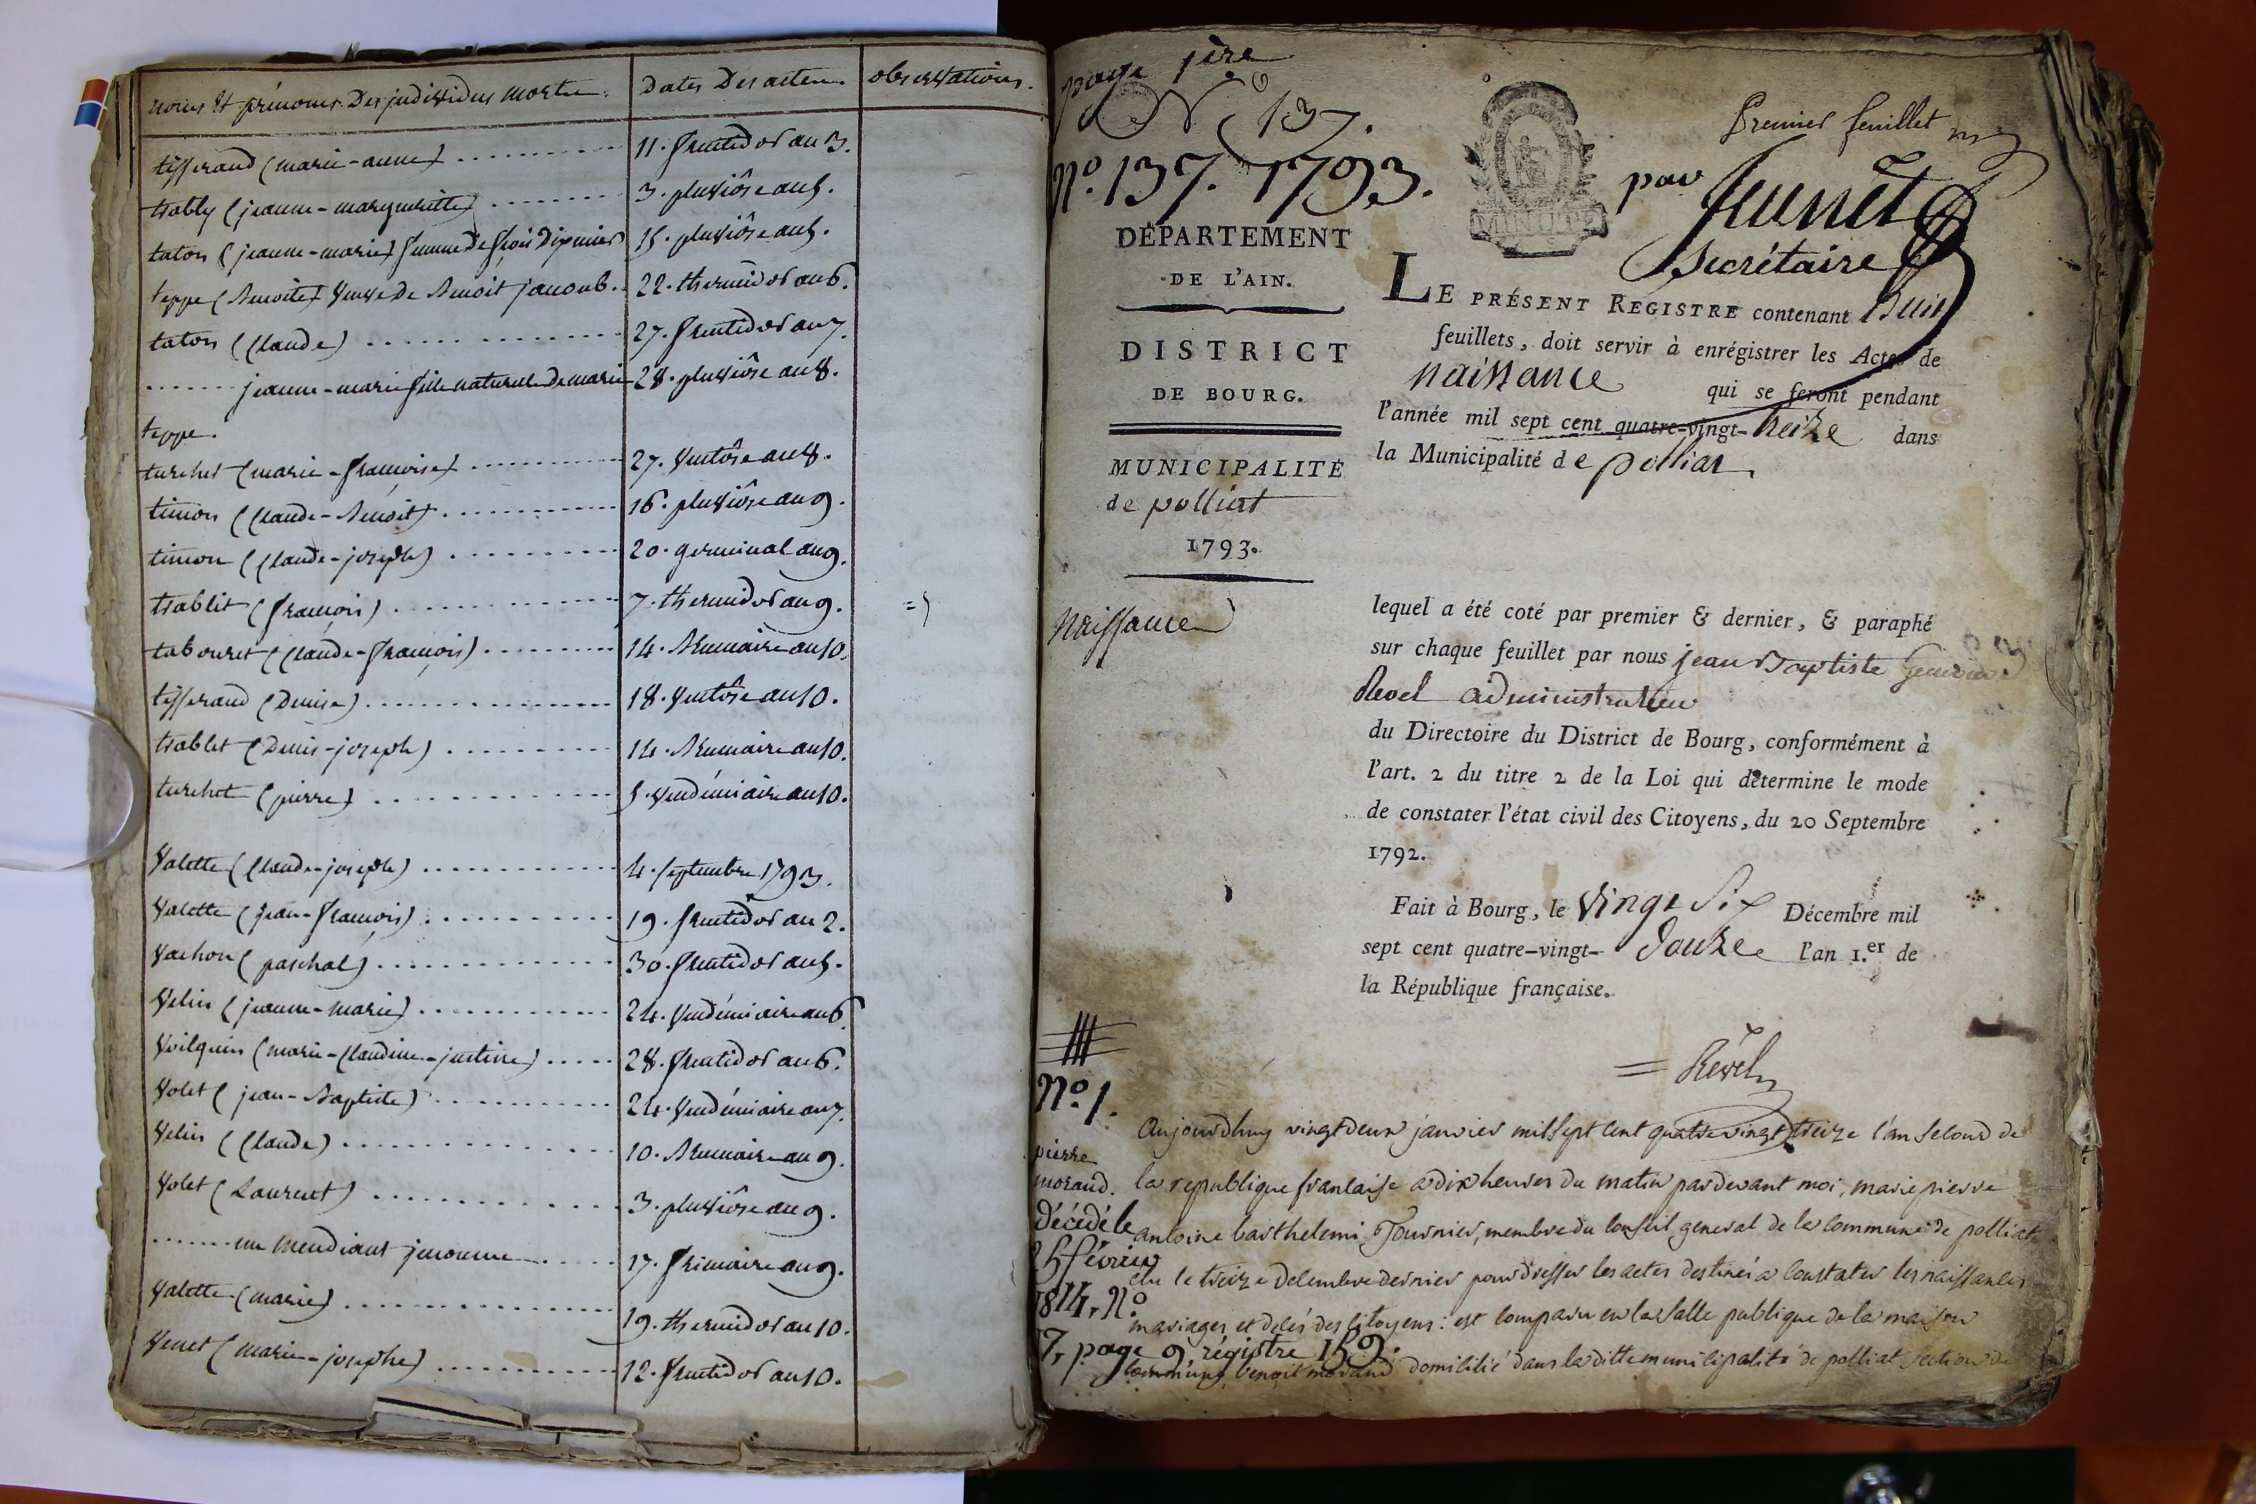 noms et prénoms des individus morts.
Dates des actes.
observations.
tisserand (marie-anne)
11. fructidor an 3.
trably (jeanne-margueritte)
3. pluviôse an 5.
taton (jeanne-marie) femme de
15. pluviôse an 5.
teppe (Benoite) veuve de Benoit
22. thermidor an 6.
taton (Claude)
27. fructidor an 7.
jeanne-marie fille naturelle de marie
28. pluviôse an 8.
teppe.
turchet (marie-françoise)
27. ventôse an 8.
timon (Claude-Benoit)
16. pluviôse an 9.
timon (Claude-joseph)
20. germinal an 9.
trablit (françois)
7. thermidor an 9.
tabouret (Claude-françois)
14. Brumaire an 10.
tisserand (Denise)
18. ventôse an 10.
trablet (Denis-joseph)
14. Brumaire an 10.
turchet (pierre)
5. vendémiaire an 10.
Valette (Claude-joseph)
4. septembre 1793.
Valette (jean-françois)
19. fructidor an 2.
Vachon (paschal)
30. fructidor an 5.
Velin (jeanne-marie)
24. vendémiaire an 6.
Voilquin (marie-Claudine-justine)
28. fructidor an 6.
Volet (jean-Baptiste)
24. vendémiaire an 7.
Velin (Claude)
10. Brumaire an 9.
Volet (Laurent)
3. pluviôse an 9.
un mendiant inconnu
17. frimaire an 9.
Valette (marie)
19. thermidor an 10.
Venet (marie-josephe)
12. fructidor an 10.
page 1ère
137.
N.º 137. 1793.
DÉPARTEMENT
DE L'AIN.
DISTRICT
DE BOURG.
MUNICIPALITÉ
de polliat
1793.
Naissance
MINUTE
Premier feuillet
par
Secrétaire
LE PRÉSENT REGISTRE contenant
feuillets, doit servir à enrégistrer les Actes de
naissance qui se feront pendant
l'année mil sept cent quatre-vingt-treize dans
la Municipalité de polliat
lequel a été coté par premier & dernier, & paraphé
sur chaque feuillet par nous jean Baptiste
Revel administrateur
du Directoire du District de Bourg, conformément à
l'art. 2 du titre 2 de la Loi qui détermine le mode
de constater l'état civil des Citoyens, du 20 Septembre
1792.
Fait à Bourg, le vingt Six Décembre mil
sept cent quatre-vingt-douze l'an 1.er de
la République française.
Revel
N.º 1.
pierre
morand.
décédé le
25 février
1814, N.º
7, page 9 régistre 159.
Aujourdhuy vingt deux janvier mil sept cent quatre vingt treize l'an second de
la republique francaise a dix heures du matin pardevant moi, marie pierre
antoine barthelemi Fournier, membre du conseil general de la commune de polliat
elu le treize decembre dernier pour dresser les actes destinés a constater les naissances
mariages et décés des citoyens: est comparu en la salle publique de la maison
commune benoit morand domicilié dans la ditte municipalité de polliat section de